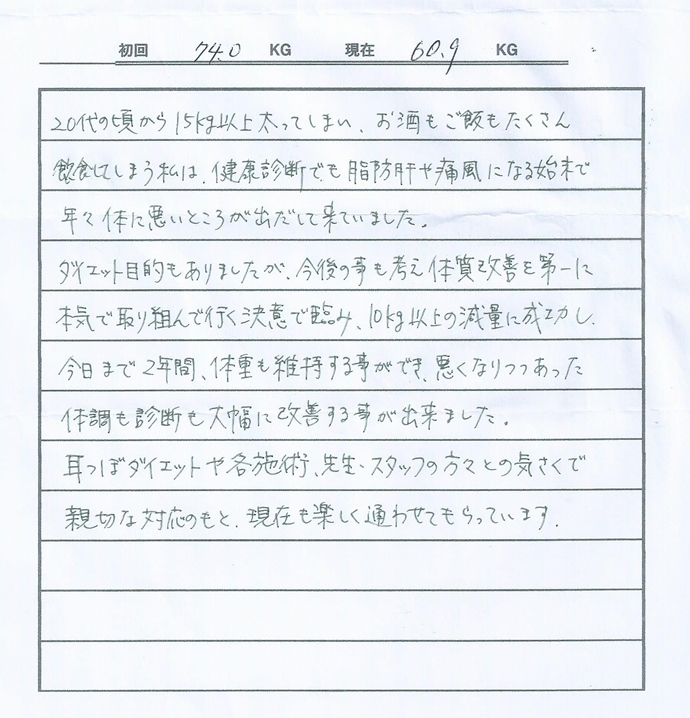 初回 74.0 KG 現在 60.9 KG
20代の頃から15kg以上太ってしまい、お酒もご飯もたくさん
飲食してしまう私は、健康診断でも脂肪肝や痛風になる始末で
年々体に悪いところが出だして来ていました。
ダイエット目的もありましたが、今後の事も考え体質改善を第一に
本気で取り組んで行く決意で臨み、10kg以上の減量に成功し、
今日まで2年間、体重も維持する事ができ、悪くなりつつあった
体調も診断も大幅に改善する事が出来ました。
耳つぼダイエットや各施術、先生・スタッフの方々との気さくで
親切な対応のもと、現在も楽しく通わせてもらっています.